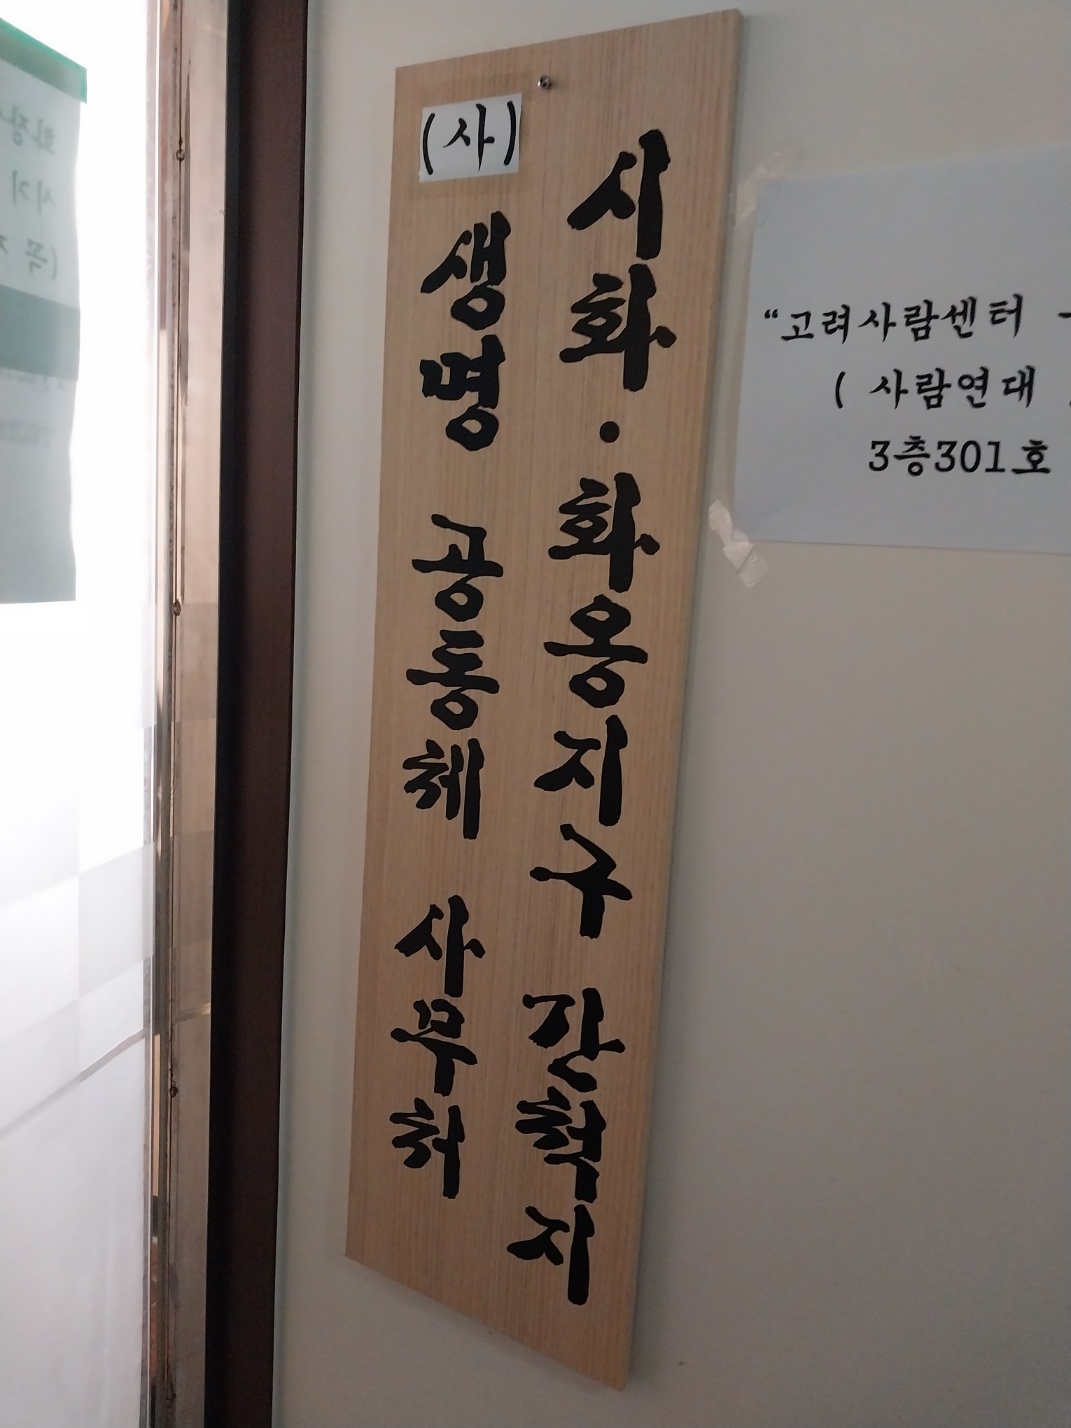 시화·화옹지구 간척지
(사)
생명 공동체 사무처
“고려사람센터
( 사람연대
3층301호